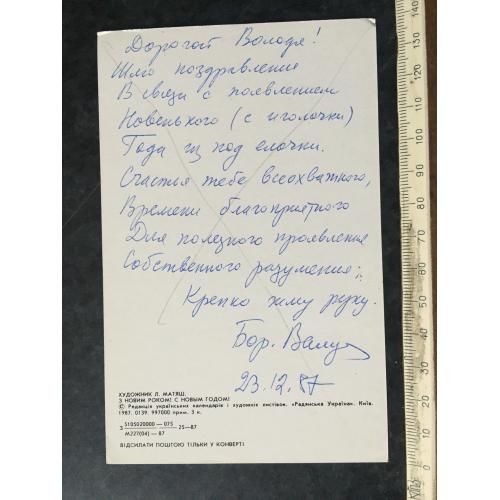 Дорогой Володя!
Шлю поздравление
В связи с появлением
Новенького (с иголочки)
Года из под елочки.
Счастья тебе всеохватного,
Времени благоприятного
Для полезного проявления
Собственного разумения;
Крепко жму руку.
Бор.
23.12.87
ХУДОЖНИК Л. МАТЯШ.
З НОВИМ РОКОМ! С НОВЫМ ГОДОМ!
© Редакція українських календарів і художніх листівок. «Радянська Україна». Київ.
1987. 0139. 997000 прим. 3 к.
З 5105020000—075 25—87
М227(04)—87
ВІДСИЛАТИ ПОШТОЮ ТІЛЬКИ У КОНВЕРТІ
140
130
120
110
100
90
80
70
60
50
40
30
20